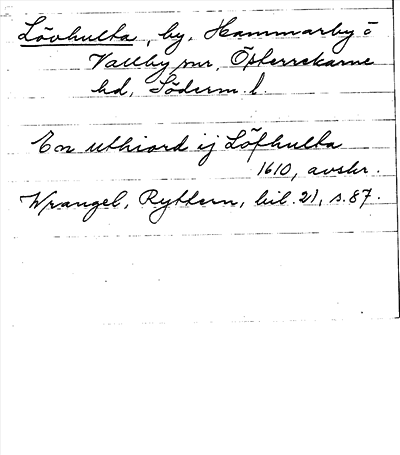 Lövhulta, by, Hammarby o
Vallby snr, Österrekarne
hd, Söderm. l.
En uthiord ij Löfhulta
1610, avskr.
Wrangel, Ryttern, bil. 21, s. 87.